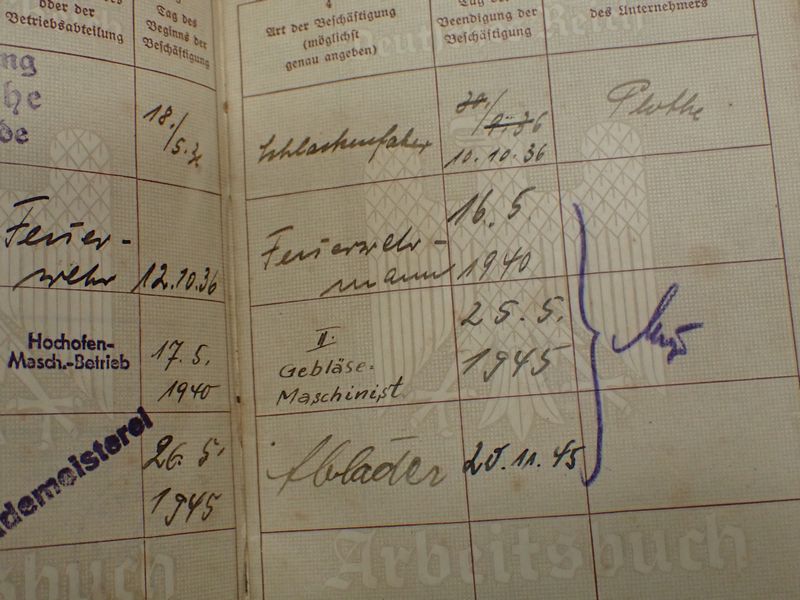 oder der
Betriebsabteilung
Tag des
Beginns der
Beschäftigung
4
Art der Beschäftigung
(möglichst
genau angeben)
Tag der
Beendigung der
Beschäftigung
des Unternehmers
Deutsches Reich
ng
he
de
18./
5.36
30./
9.36
10.10.36
Feuer-
wehr
12.10.36
Feuerwehr-
mann
16.5.
1940
Hochofen-
Masch.-Betrieb
17.5.
1940
II.
Gebläse-
Maschinist
25.5.
1945
demeisterei
26.5.
1945
Ablader
20.11.45
sbuch
Arbeitsbuch